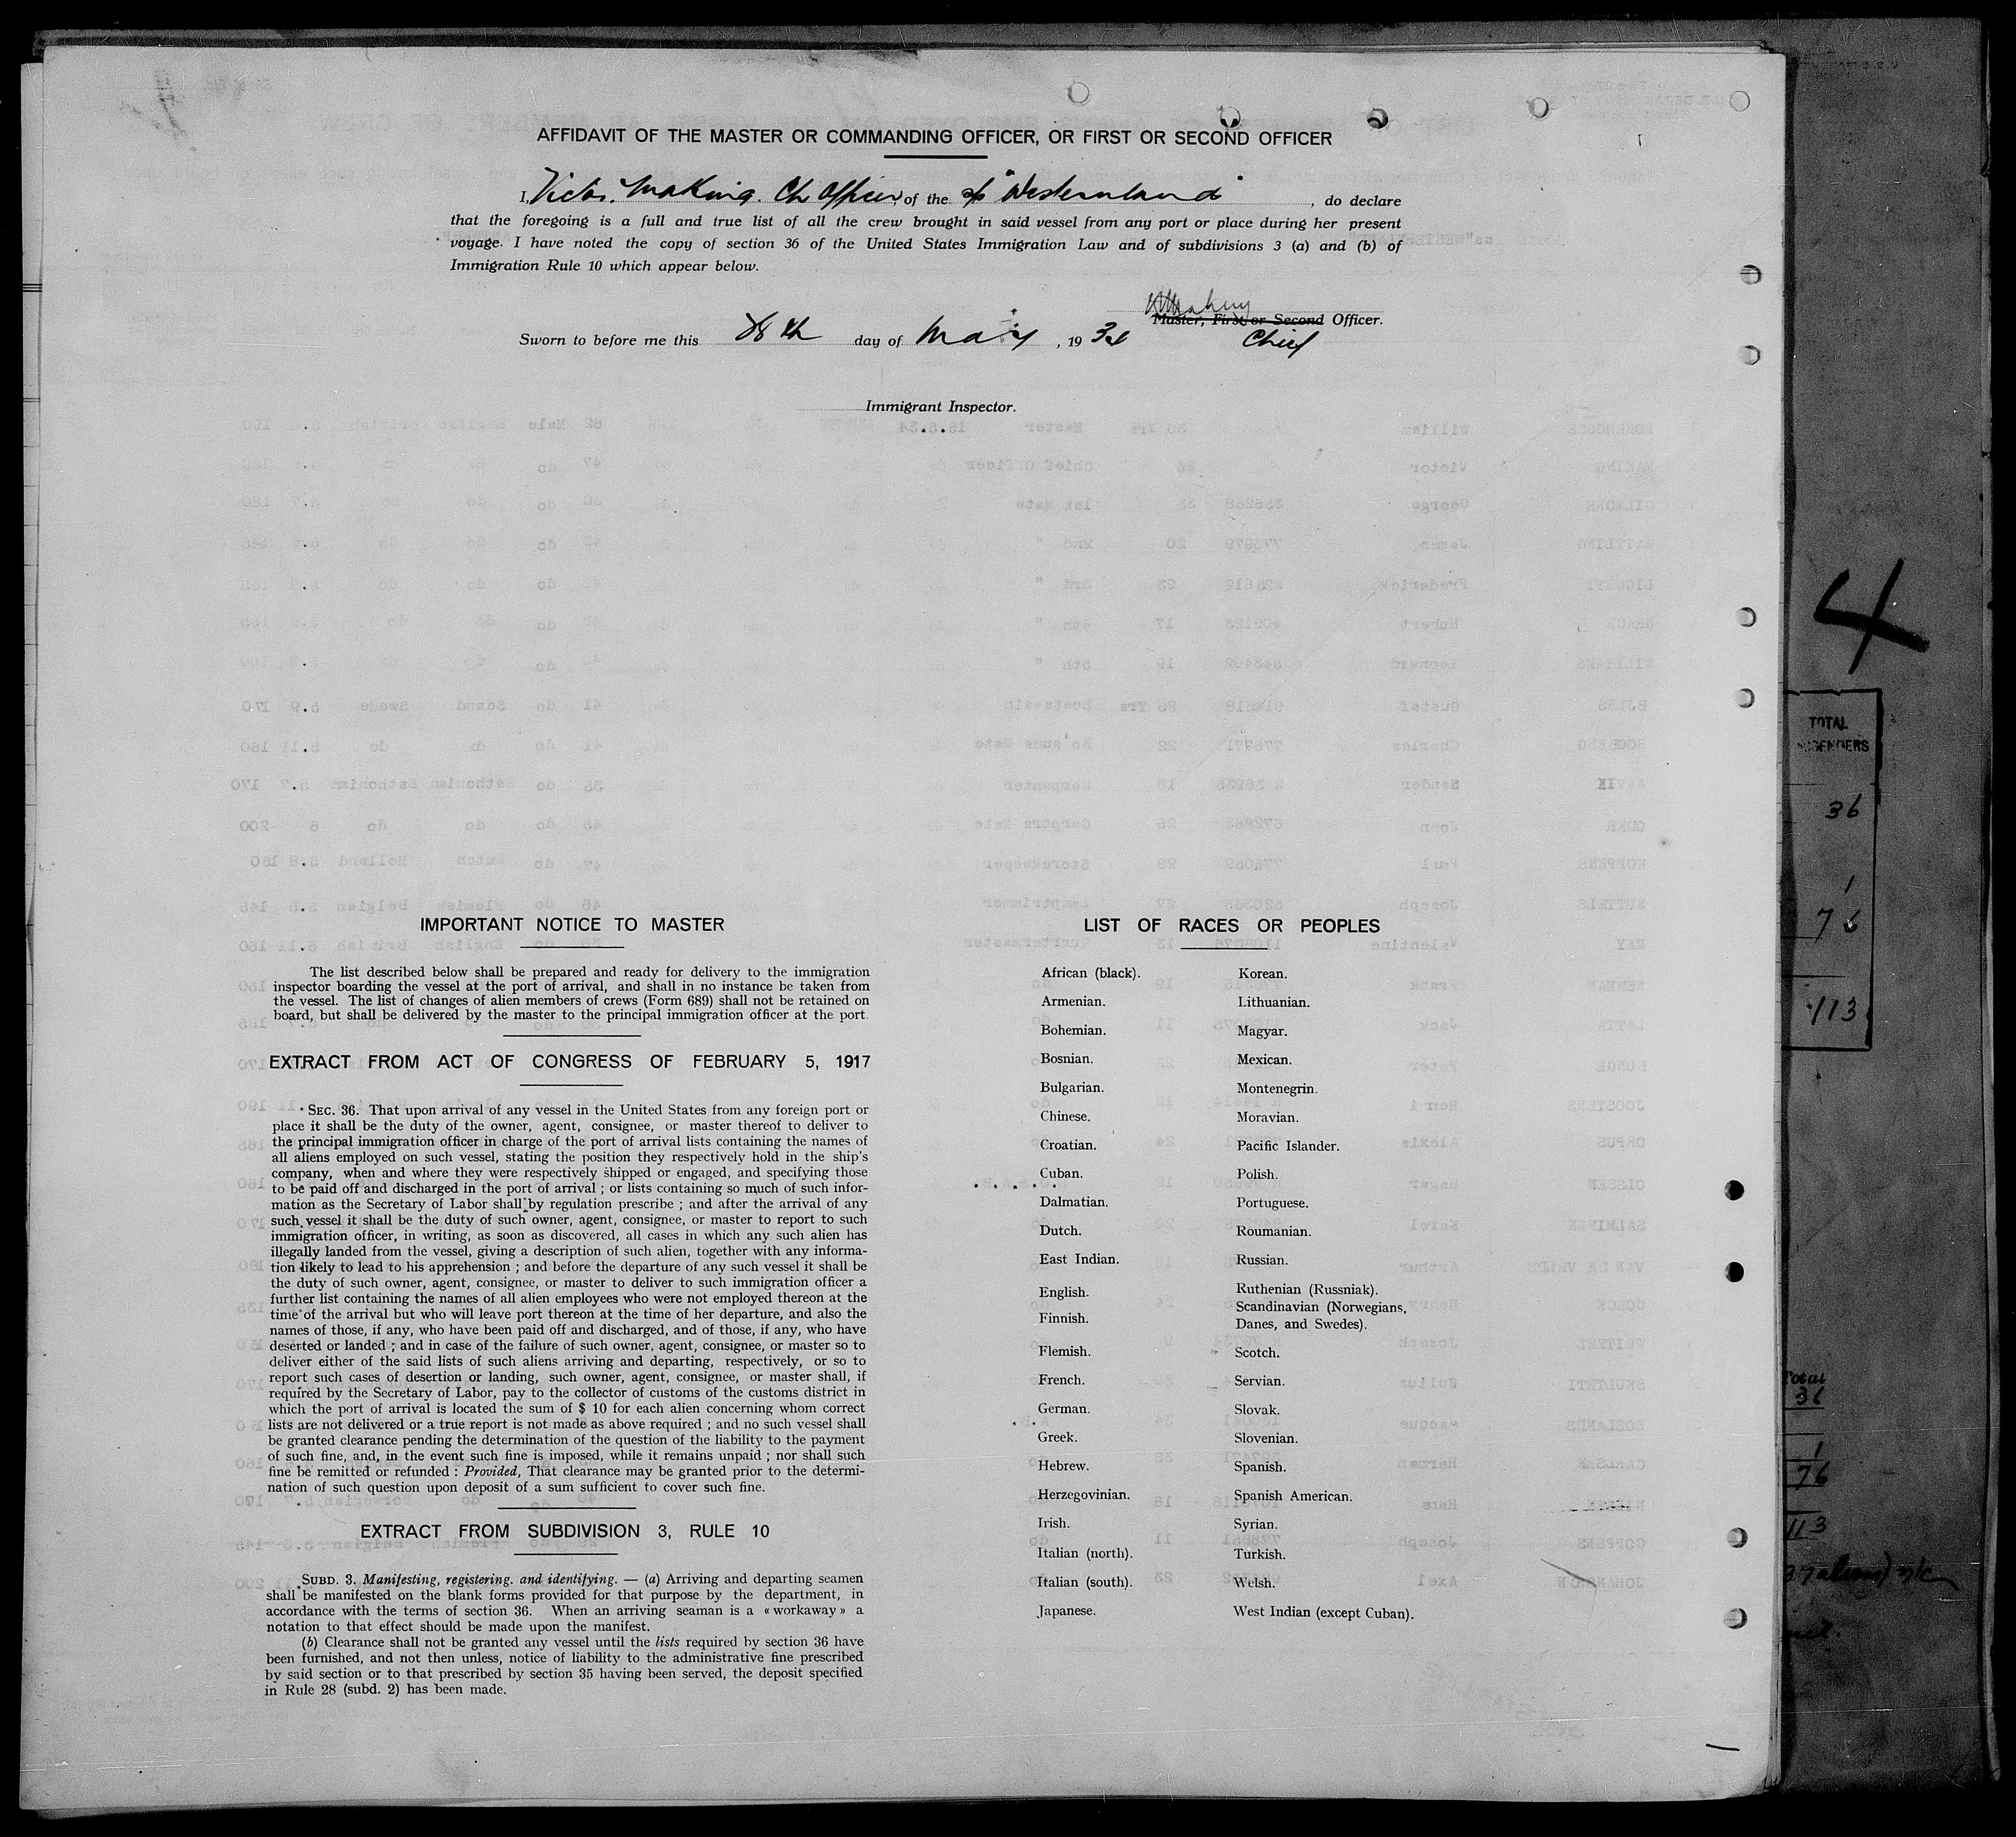 AFFIDAVIT OF THE MASTER OR COMMANDING OFFICER, OR FIRST OR SECOND OFFICER
I, Victor Making. Ch Officer, of the s/s "Westernland", do declare
that the foregoing is a full and true list of all the crew brought in said vessel from any port or place during her present
voyage. I have noted the copy of section 36 of the United States Immigration Law and of subdivisions 3 (a) and (b) of
Immigration Rule 10 which appear below.
Master, First or Second Officer.
Chief
Sworn to before me this 28th day of May, 1934
Immigrant Inspector.
IMPORTANT NOTICE TO MASTER
The list described below shall be prepared and ready for delivery to the immigration
inspector boarding the vessel at the port of arrival, and shall in no instance be taken from
the vessel. The list of changes of alien members of crews (Form 689) shall not be retained on
board, but shall be delivered by the master to the principal immigration officer at the port.
EXTRACT FROM ACT OF CONGRESS OF FEBRUARY 5, 1917
SEC. 36. That upon arrival of any vessel in the United States from any foreign port or
place it shall be the duty of the owner, agent, consignee, or master thereof to deliver to
the principal immigration officer in charge of the port of arrival lists containing the names of
all aliens employed on such vessel, stating the position they respectively hold in the ship's
company, when and where they were respectively shipped or engaged, and specifying those
to be paid off and discharged in the port of arrival ; or lists containing so much of such infor-
mation as the Secretary of Labor shall by regulation prescribe ; and after the arrival of any
such vessel it shall be the duty of such owner, agent, consignee, or master to report to such
immigration officer, in writing, as soon as discovered, all cases in which any such alien has
illegally landed from the vessel, giving a description of such alien, together with any informa-
tion likely to lead to his apprehension ; and before the departure of any such vessel it shall be
the duty of such owner, agent, consignee, or master to deliver to such immigration officer a
further list containing the names of all alien employees who were not employed thereon at the
time of the arrival but who will leave port thereon at the time of her departure, and also the
names of those, if any, who have been paid off and discharged, and of those, if any, who have
deserted or landed ; and in case of the failure of such owner, agent, consignee, or master so to
deliver either of the said lists of such aliens arriving and departing, respectively, or so to
report such cases of desertion or landing, such owner, agent, consignee, or master shall, if
required by the Secretary of Labor, pay to the collector of customs of the customs district in
which the port of arrival is located the sum of $ 10 for each alien concerning whom correct
lists are not delivered or a true report is not made as above required ; and no such vessel shall
be granted clearance pending the determination of the question of the liability to the payment
of such fine, and, in the event such fine is imposed, while it remains unpaid ; nor shall such
fine be remitted or refunded : Provided, That clearance may be granted prior to the determi-
nation of such question upon deposit of a sum sufficient to cover such fine.
EXTRACT FROM SUBDIVISION 3, RULE 10
SUBD. 3. Manifesting, registering. and identifying. — (a) Arriving and departing seamen
shall be manifested on the blank forms provided for that purpose by the department, in
accordance with the terms of section 36. When an arriving seaman is a « workaway » a
notation to that effect should be made upon the manifest.
(b) Clearance shall not be granted any vessel until the lists required by section 36 have
been furnished, and not then unless, notice of liability to the administrative fine prescribed
by said section or to that prescribed by section 35 having been served, the deposit specified
in Rule 28 (subd. 2) has been made.
LIST OF RACES OR PEOPLES
African (black).
Armenian.
Bohemian.
Bosnian.
Bulgarian.
Chinese.
Croatian.
Cuban.
Dalmatian.
Dutch.
East Indian.
English.
Finnish.
Flemish.
French.
German.
Greek.
Hebrew.
Herzegovinian.
Irish.
Italian (north).
Italian (south).
Japanese.
Korean.
Lithuanian.
Magyar.
Mexican.
Montenegrin.
Moravian.
Pacific Islander.
Polish.
Portuguese.
Roumanian.
Russian.
Ruthenian (Russniak).
Scandinavian (Norwegians,
Danes, and Swedes).
Scotch.
Servian.
Slovak.
Slovenian.
Spanish.
Spanish American.
Syrian.
Turkish.
Welsh.
West Indian (except Cuban).
4
TOTAL
36
1
76
113
Total
36
1
76
113